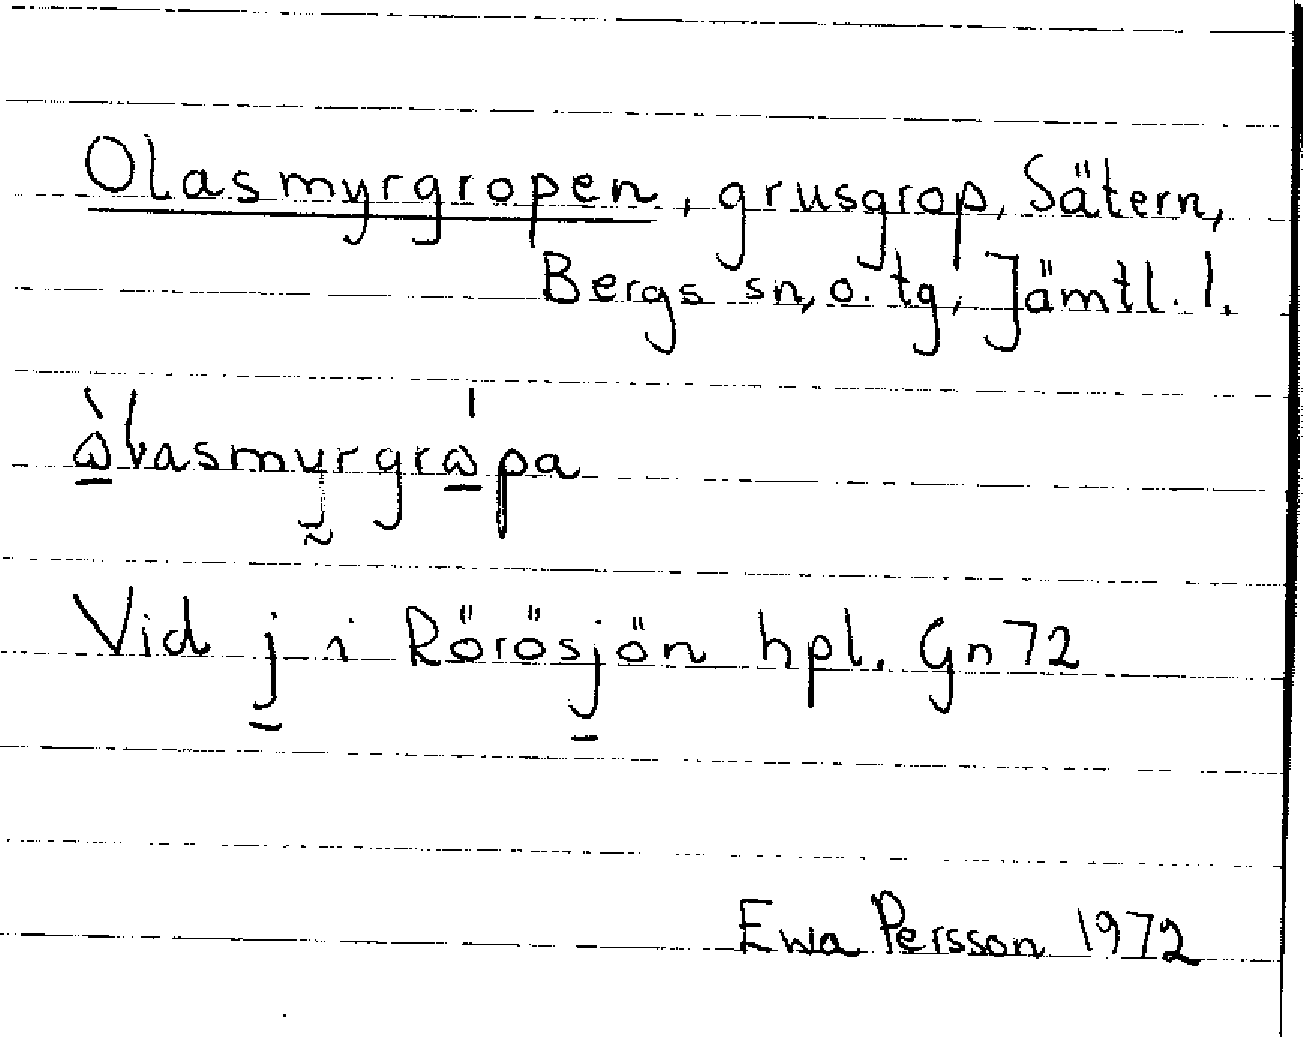 Olasmyrgropen, grusgrop, Sätern,
Bergs sn, o. tg, Jämtl. l.
Vid j i Rörösjön hpl. Gn 72
Ewa Persson 1972